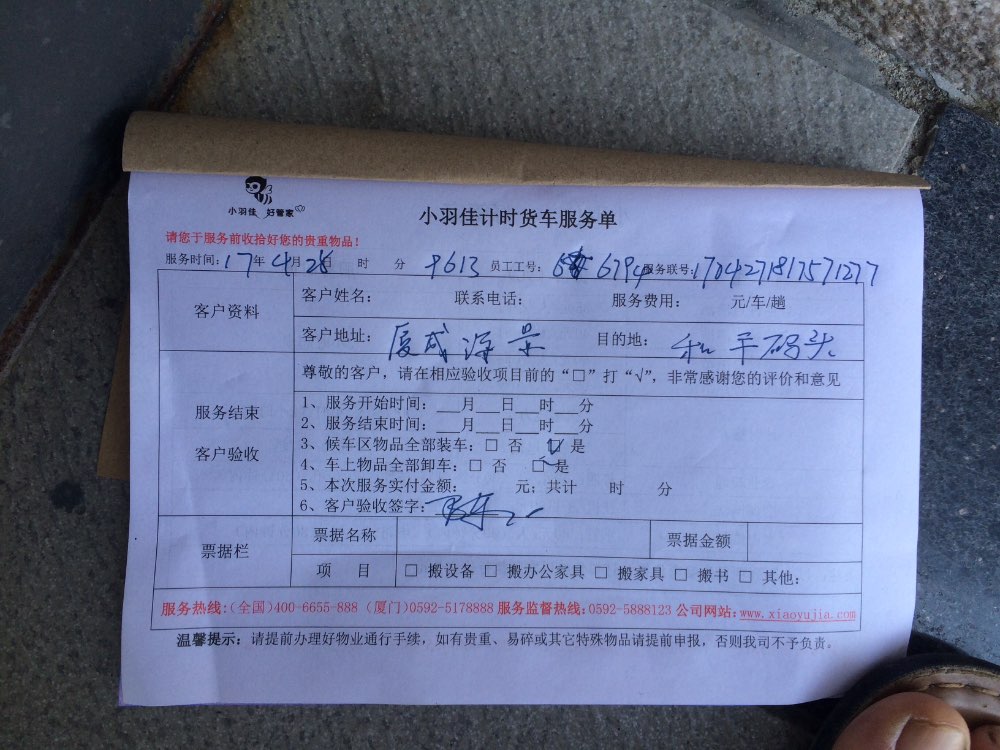 小羽佳 好管家
小羽佳计时货车服务单
请您于服务前收拾好您的贵重物品！
服务时间：17年4月28日 时 分 9613 员工工号： 6794 服务联号：1704271817571277
客户资料 客户姓名： 联系电话： 服务费用： 元/车/趟
客户地址：厦成海景 目的地：和平码头
尊敬的客户，请在相应验收项目前的“□”打“√”，非常感谢您的评价和意见
服务结束
客户验收
1、服务开始时间：___月___日___时___分
2、服务结束时间：___月___日___时___分
3、候车区物品全部装车：□ 否 □ 是
4、车上物品全部卸车：□ 否 □ 是
5、本次服务实付金额： 元；共计 时 分
6、客户验收签字：
票据栏 票据名称 票据金额
项 目 □ 搬设备 □ 搬办公家具 □ 搬家具 □ 搬书 □ 其他：
服务热线:(全国)400-6655-888 (厦门)0592-5178888 服务监督热线:0592-5888123 公司网站:www.xiaoyujia.com
温馨提示：请提前办理好物业通行手续，如有贵重、易碎或其它特殊物品请提前申报，否则我司不予负责。